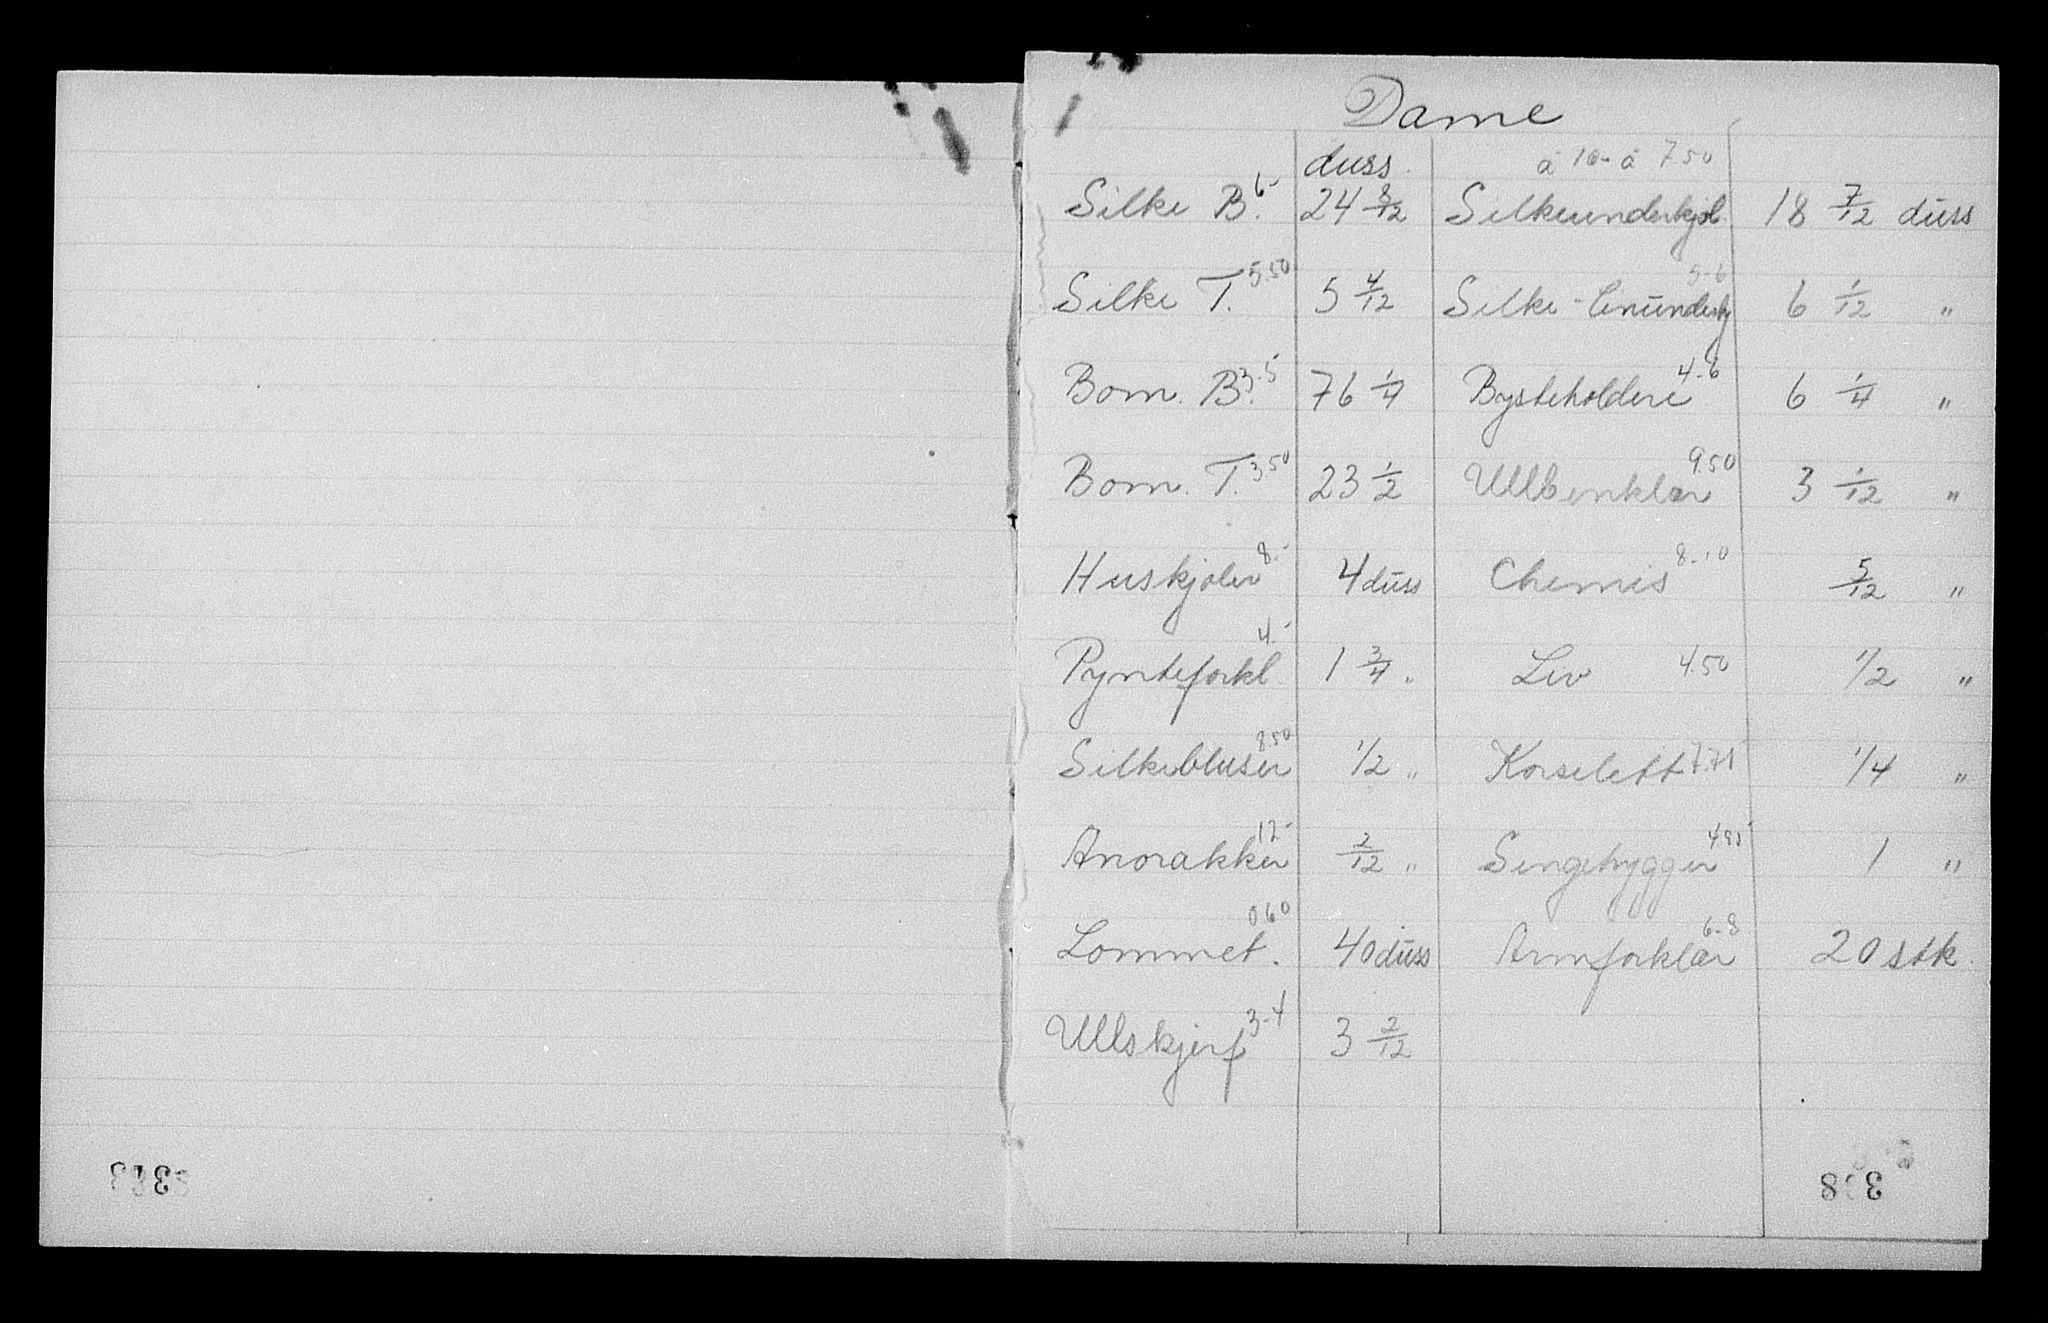 Dame
duss. à 10- à 7 50
Silke B. 6- 24 8/12 Silkeunderkjol. 18 7/12 duss
Silke T. 5.50 5 4/12 Silke- 5-6 6 1/12 "
Bom. B. 3.5 76 1/4 Bysteholdere 4-6 6 1/4 "
Bom. T. 3.50 23 1/2 Ullbenklær 9.50 3 1/12 "
Huskjoler 8.- 4 duss Chemis 8-10 5/12 "
Pynteforkl. 4.- 1 3/4 " Liv 4.50 1/2 "
Silkebluser 8.50 1/2 " Korselett 7.75 1/4 "
Anorakker 12- 2/12 " Sengetrygger 1 "
Lommet. 0 60 40 duss Armforklær 6-8 20 stk.
Ullskjerf 3-4 3 2/12